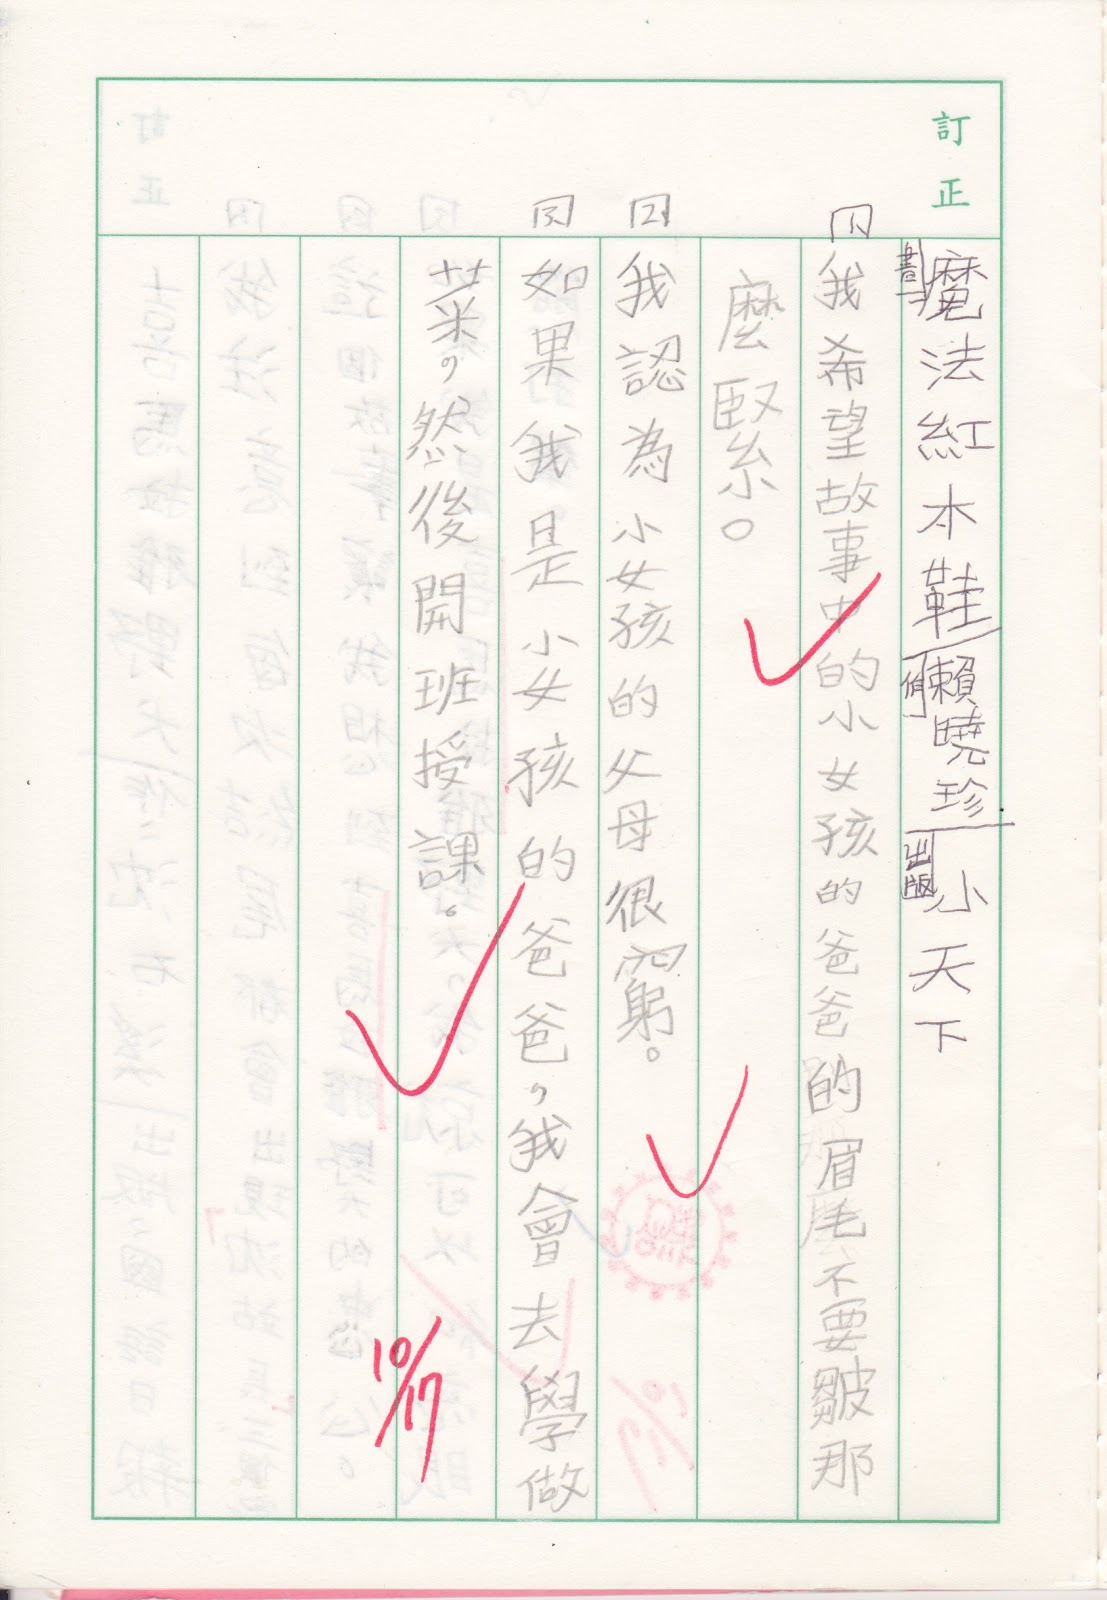 訂正
魔法紅木鞋 書 賴曉珍 出版 小天下
1 我希望故事中的小女孩的爸爸的眉毛不要皺那
麼緊。
2 我認為小女孩的父母很窮。
3 如果我是小女孩的爸爸，我會去學做
菜，然後開班授課。
10/17